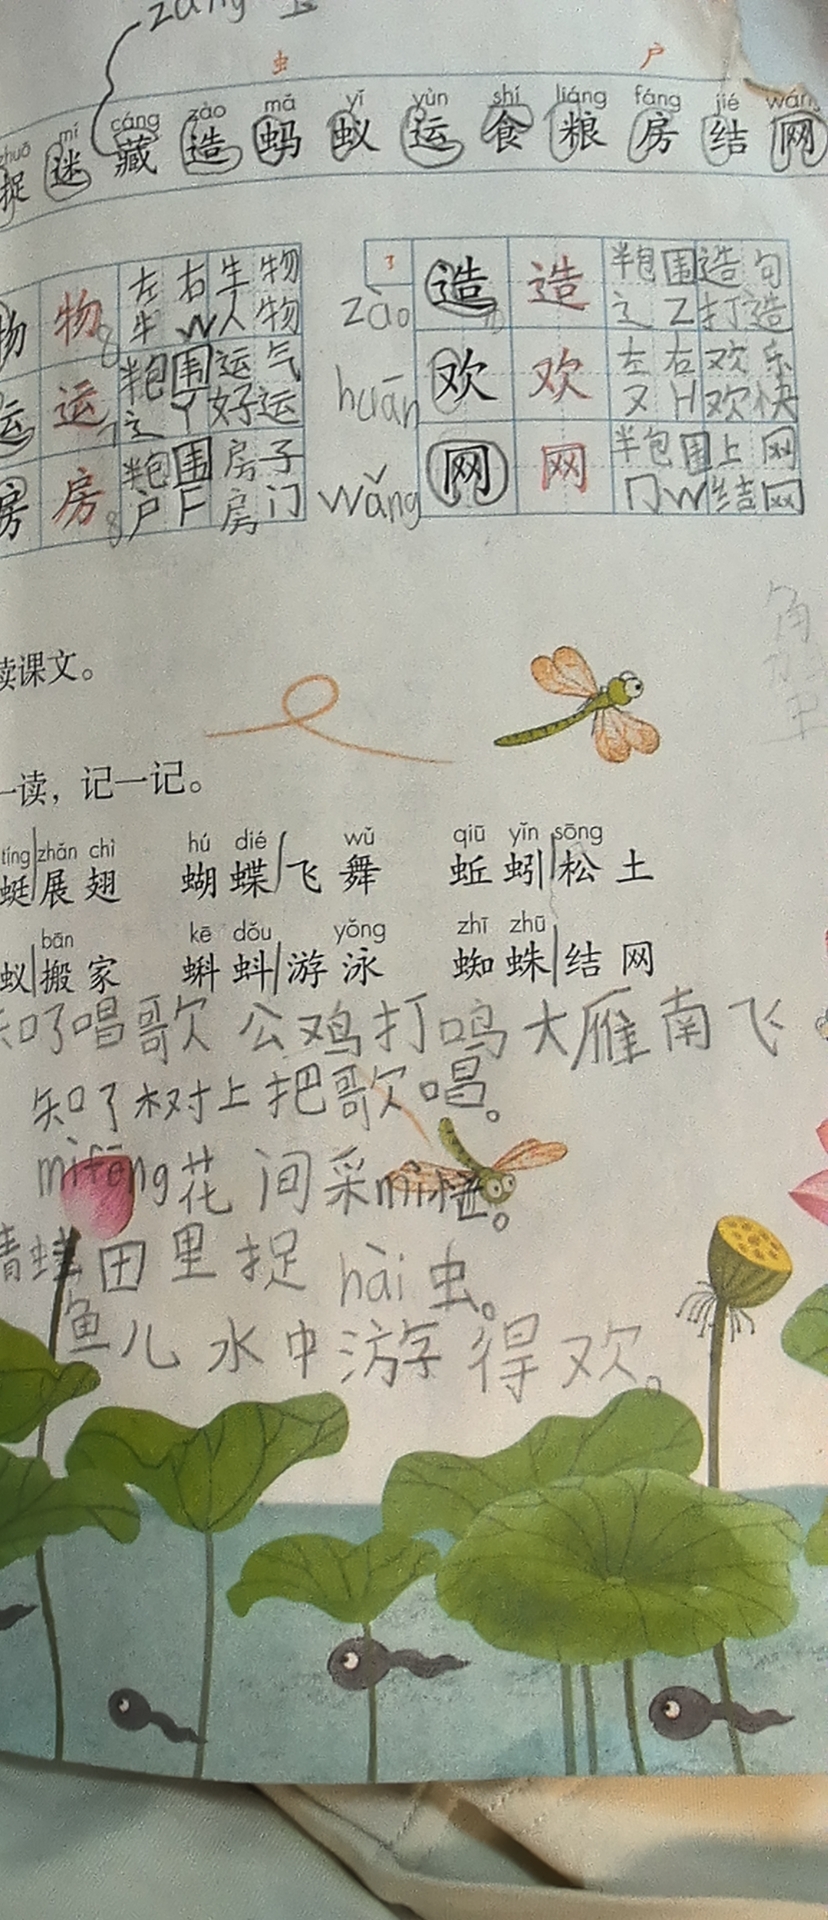 zàng
虫 户
zhuō mí cáng zào mǎ yǐ yùn shí liáng fáng jié wǎng
捉 迷 藏 造 蚂 蚁 运 食 粮 房 结 网
物 物 左右 生物
牛 W 人物
运 运 半包围 运气
辶 Y 好运
房 房 半包围 房子
户 F 房门
zào 造 造 半包围 造句
辶 Z 打造
huān 欢 欢 左右 欢乐
又 H 欢快
wǎng 网 网 半包围 上网
冂 W 结网
读课文。
一读，记一记。
tíng zhǎn chì hú dié wǔ qiū yǐn sōng
蜓 展翅 蝴蝶 飞舞 蚯蚓 松土
bān kē dǒu yǒng zhī zhū
蚁 搬家 蝌蚪 游泳 蜘蛛 结网
知了唱歌 公鸡打鸣 大雁南飞
知了树上把歌唱。
mìfēng花间采mì忙。
青蛙田里捉hài虫。
鱼儿水中游得欢。